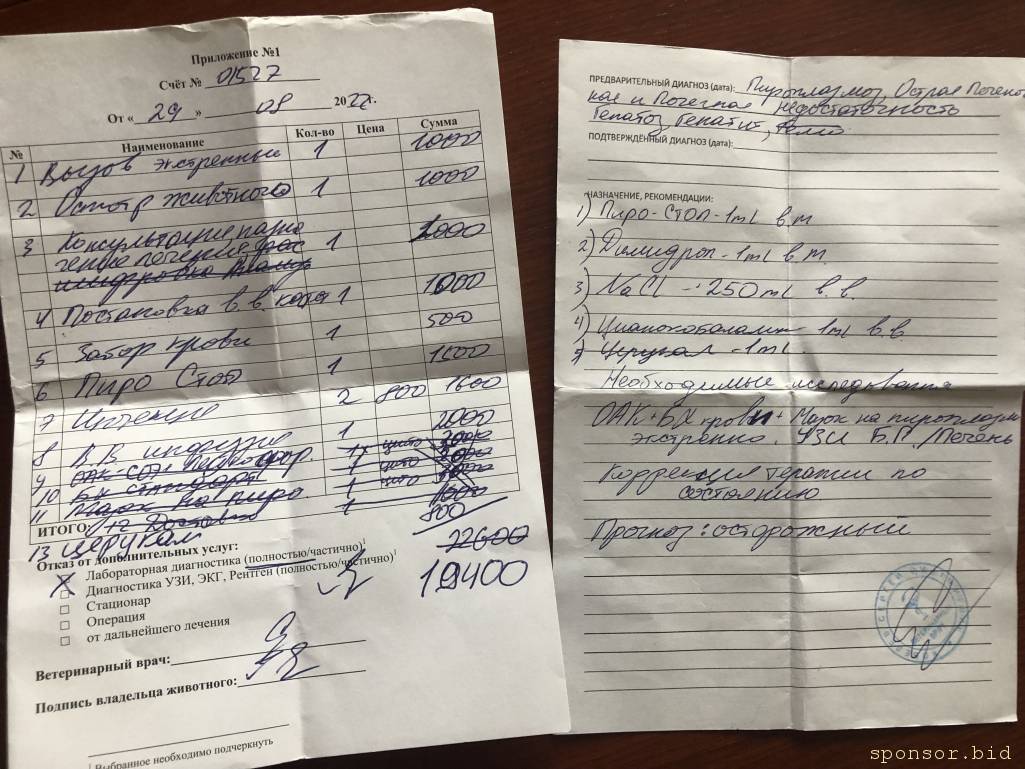 Приложение №1
Счёт № 01527
От « 29 » 08 2022г.
№ Наименование Кол-во Цена Сумма
1 Вызов экстренный 1 1000
2 Осмотр животного 1 1000
3 Консультация
1 2000
4 Постановка в.в. 1 1000
5 Забор крови 1 500
6 Пиро Стоп 1
7 Инъекции 2 800 1600
8 В.В. инфузия 1 2000
9
10
11 Мазок на пиро. 1
ИТОГО: 12 Доставка 1
13 Церукал 800
Отказ от дополнительных услуг: 22600
Лабораторная диагностика (полностью/частично)1
Диагностика УЗИ, ЭКГ, Рентген (полностью/частично)1 19400
Стационар
Операция
от дальнейшего лечения
Ветеринарный врач:
Подпись владельца животного:
1 Выбранное необходимо подчеркнуть
ПРЕДВАРИТЕЛЬНЫЙ ДИАГНОЗ (дата): Пироплазмоз, Острая Печеноч
ная и Почечная недостаточность
Гепатоз, Гепатит,
ПОДТВЕРЖДЁННЫЙ ДИАГНОЗ (дата):
НАЗНАЧЕНИЕ, РЕКОМЕНДАЦИИ:
1) Пиро-Стоп - 1ml в.м
2) Димедрол - 1ml в.м.
3) NaCl - 250ml в.в.
4) Цианокобаламин 1ml в.в.
5 Церукал - 1ml.
Необходимые исследования
ОАК + БХ крови + Мазок на пироплазмоз
экстренно. УЗИ Б.П./Печень
Коррекция терапии по
состоянию
Прогноз: осторожный
sponsor.bid